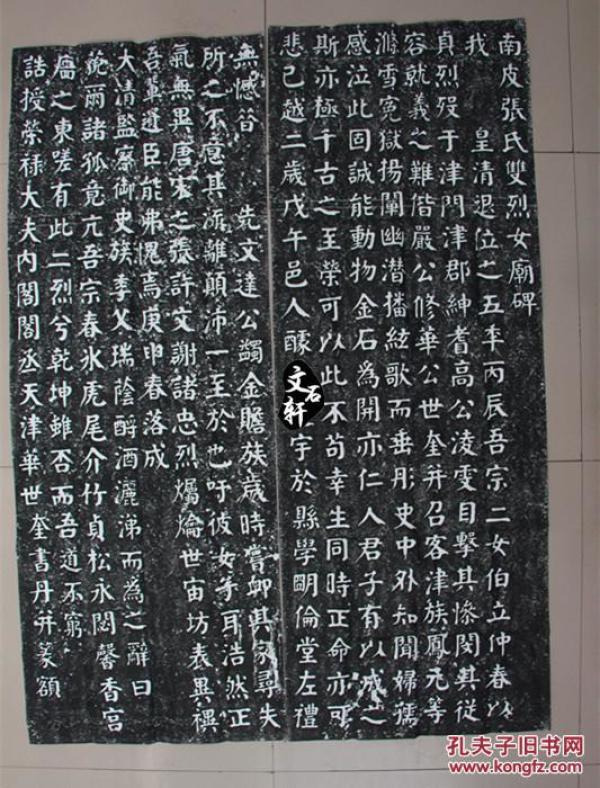 南皮張氏雙烈女廟碑
我 皇清退位之五季丙辰吾宗二女伯立仲春以
貞烈歿于津門津郡紳耆高公淩雯目擊其慘閔其從
容就義之難偕嚴公修華公世奎并召客津族鳳元等
滌雪冤獄揚闡幽潛播絃歌而垂彤史中外知聞婦孺
感泣此固誠能動物金石為開亦仁人君子有以成之
斯亦極千古之至榮可以此不苟幸生同時正命亦可
悲已越二歲戊午邑人醵 宇於縣學明倫堂左禮
無憾 先文達公蠲金贍族歲時嘗卹其家尋失
所之不意其流離顛沛一至於也吁彼女子耳浩然正
氣無畏唐宋之張許文謝諸忠烈爥爚世宙坊表異禩
吾輩遺臣能弗愧焉庚申春落成
大清監察御史族季父瑞蔭酹酒灑涕而為之辭曰
莞爾諸狐竟亢吾宗春氷虎尾介竹貞松永閟馨香宫
廧之東嗟有此二烈兮乾坤雖否而吾道不窮
誥授榮祿大夫内閣閣丞天津華世奎書丹并篆額
文石軒
孔夫子旧书网
www.kongfz.com